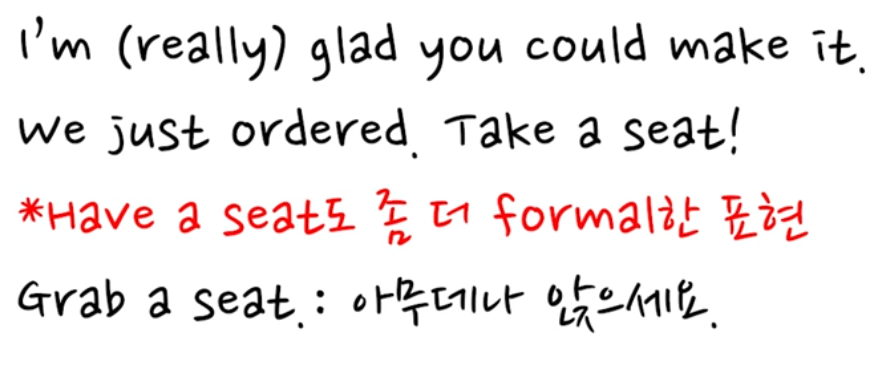 I'm (really) glad you could make it.
We just ordered. Take a seat!
*Have a seat도 좀 더 formal한 표현
Grab a seat.: 아무데나 앉으세요.